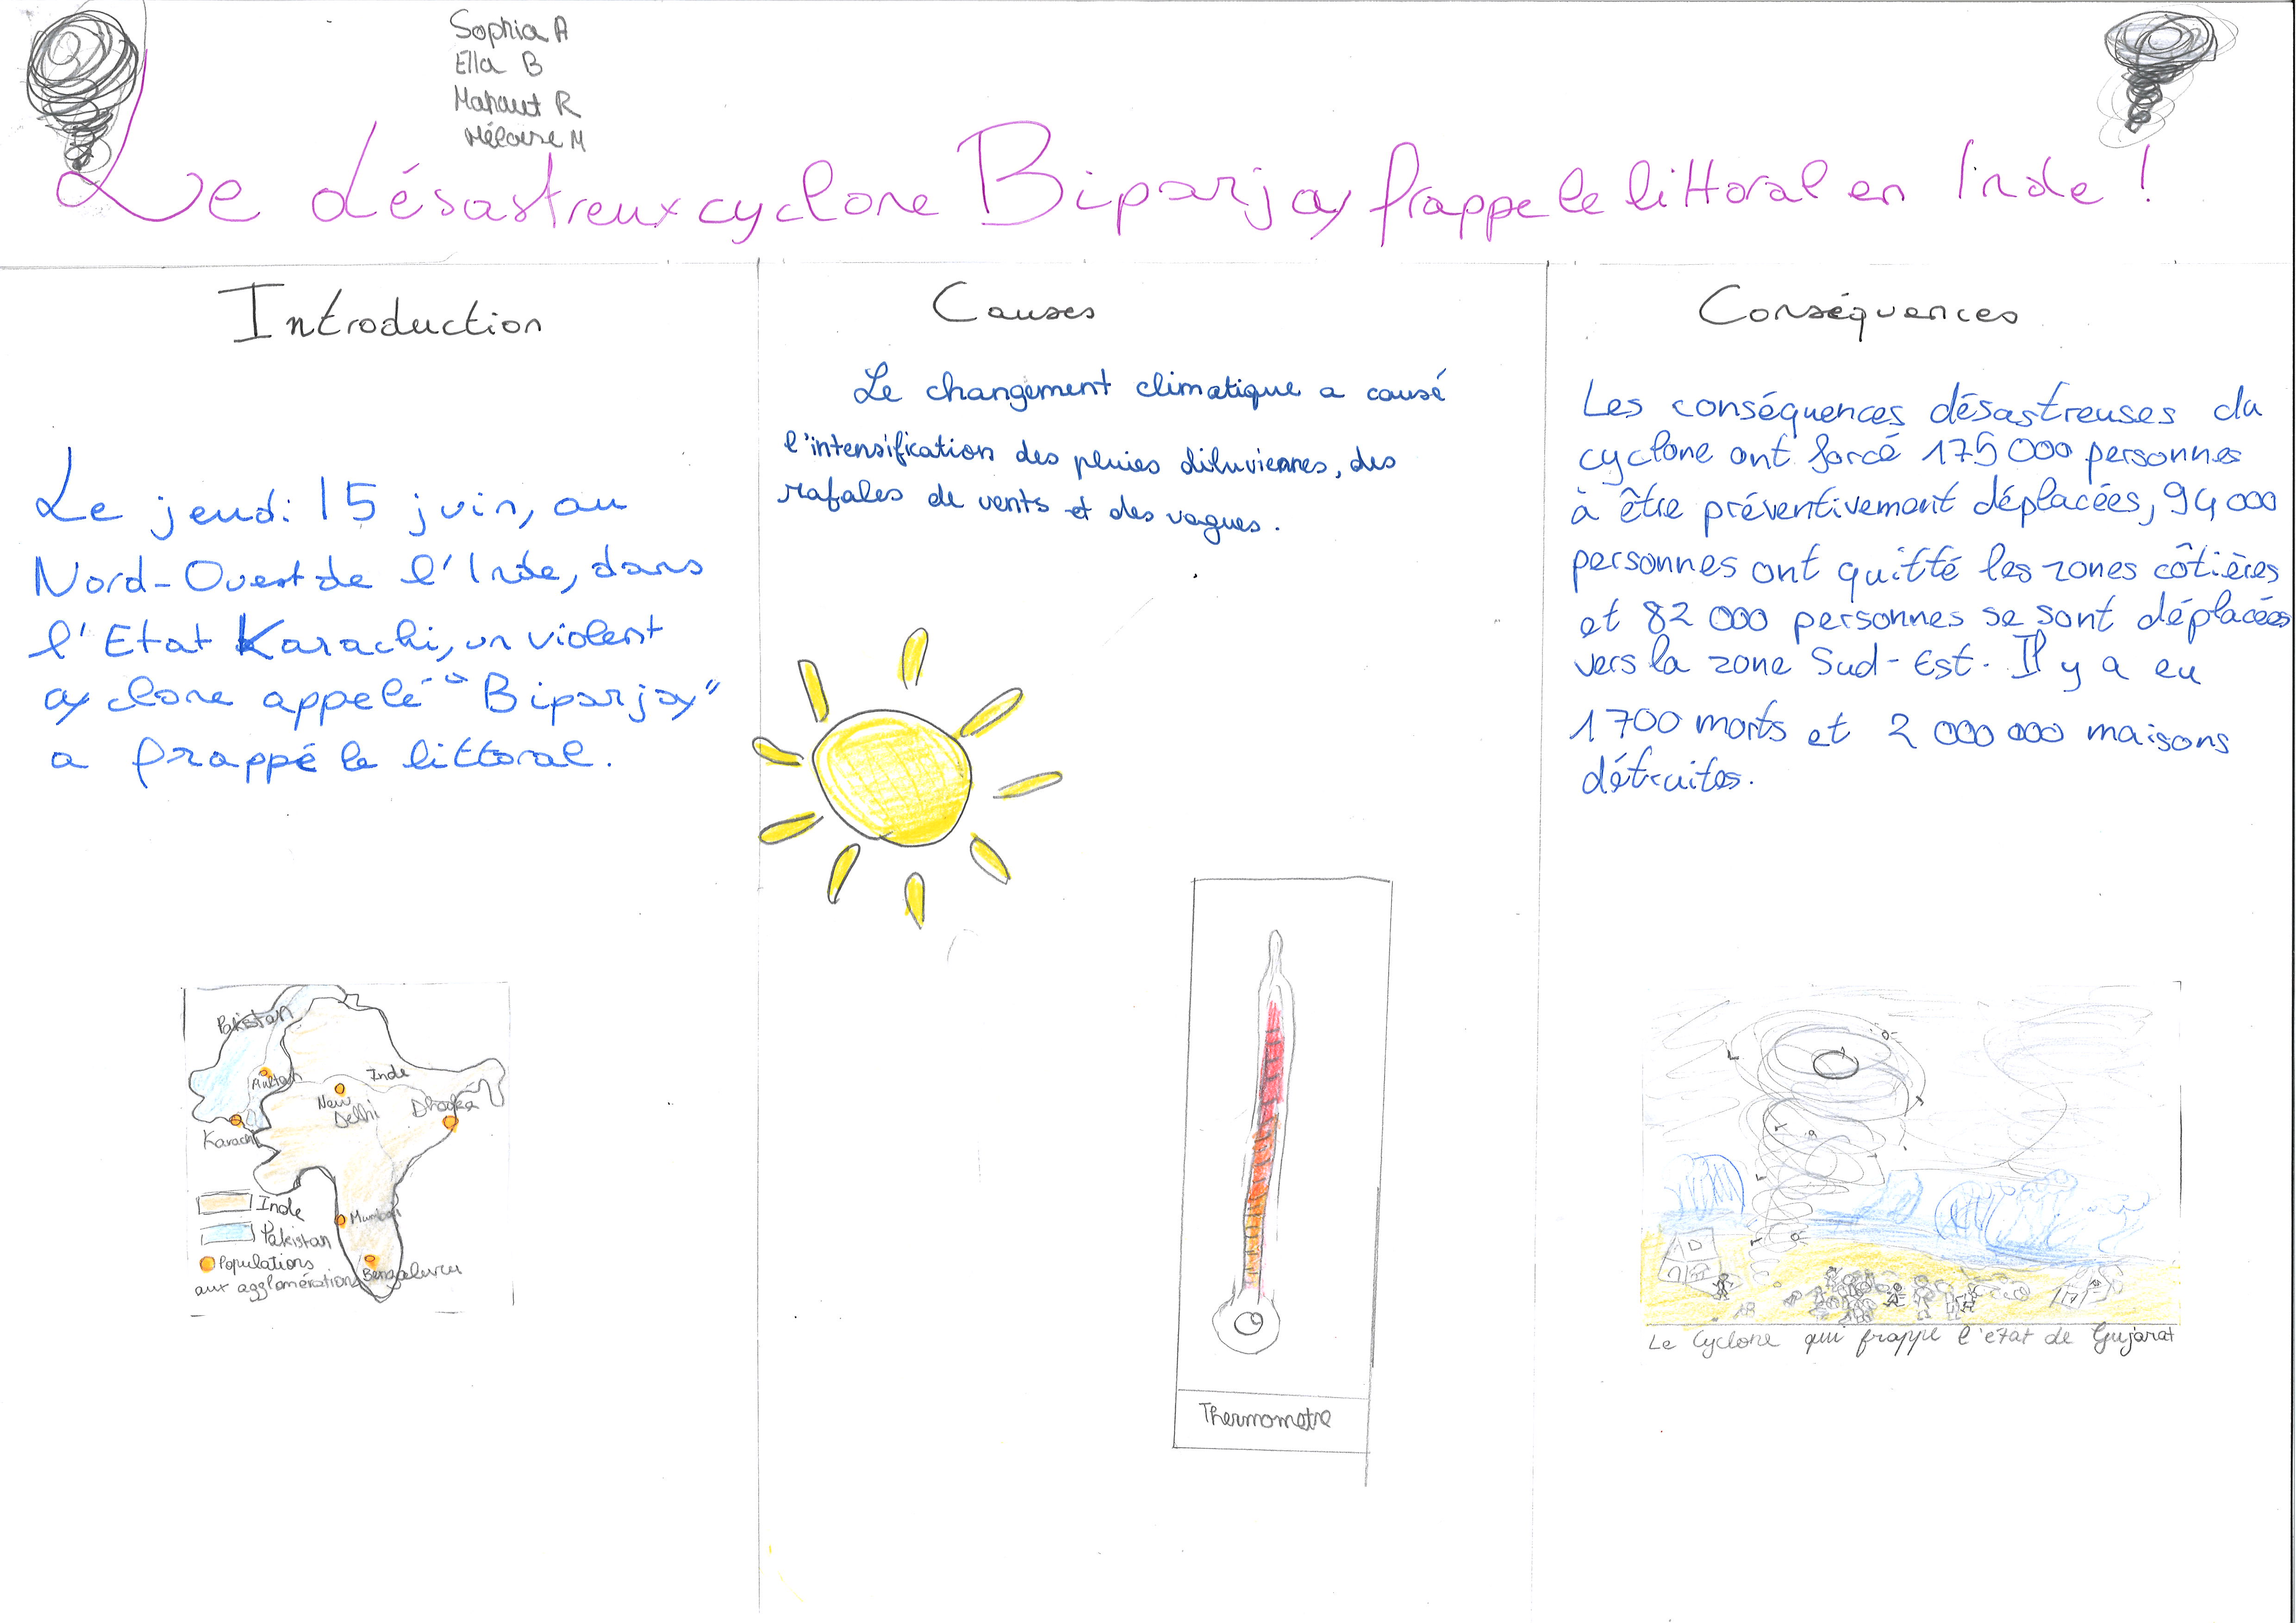 Sophia A
Ella B
Mahaut R
Héloïse M
Le désastreux cyclone Biparjoy frappe le littoral en Inde !
Introduction
Le jeudi 15 juin, au
Nord-Ouest de l'Inde, dans
l'Etat Karachi, un violent
cyclone appelé "Biparjoy"
a frappé le littoral.
Pakistan
Multan
Inde
New
Delhi
Dhaka
Karachi
Inde
Mumbai
Pakistan
Populations
aux agglomérations
Bengaluru
Causes
Le changement climatique a causé
l'intensification des pluies diluviennes, des
rafales de vents et des vagues.
Thermometre
Conséquences
Les conséquences désastreuses du
cyclone ont forcé 175 000 personnes
à être préventivement déplacées, 94 000
personnes ont quitté les zones côtières
et 82 000 personnes se sont déplacées
vers la zone Sud-Est. Il y a eu
1 700 morts et 2 000 000 maisons
détruites.
Le Cyclone qui frappe l'état de Gujarat